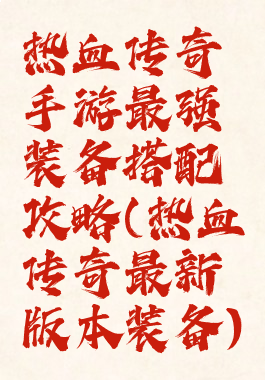 热血传奇
手游最强
装备搭配
攻略(热血
传奇最新
版本装备)